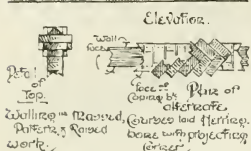 Elevation.
Wall
face
Detail
of
Top.
face of
Coping by
Plans of
alternate
Courses laid Herring.
bone with projecting
corner
Walling in Moulded,
Pattern, & Raised
work.